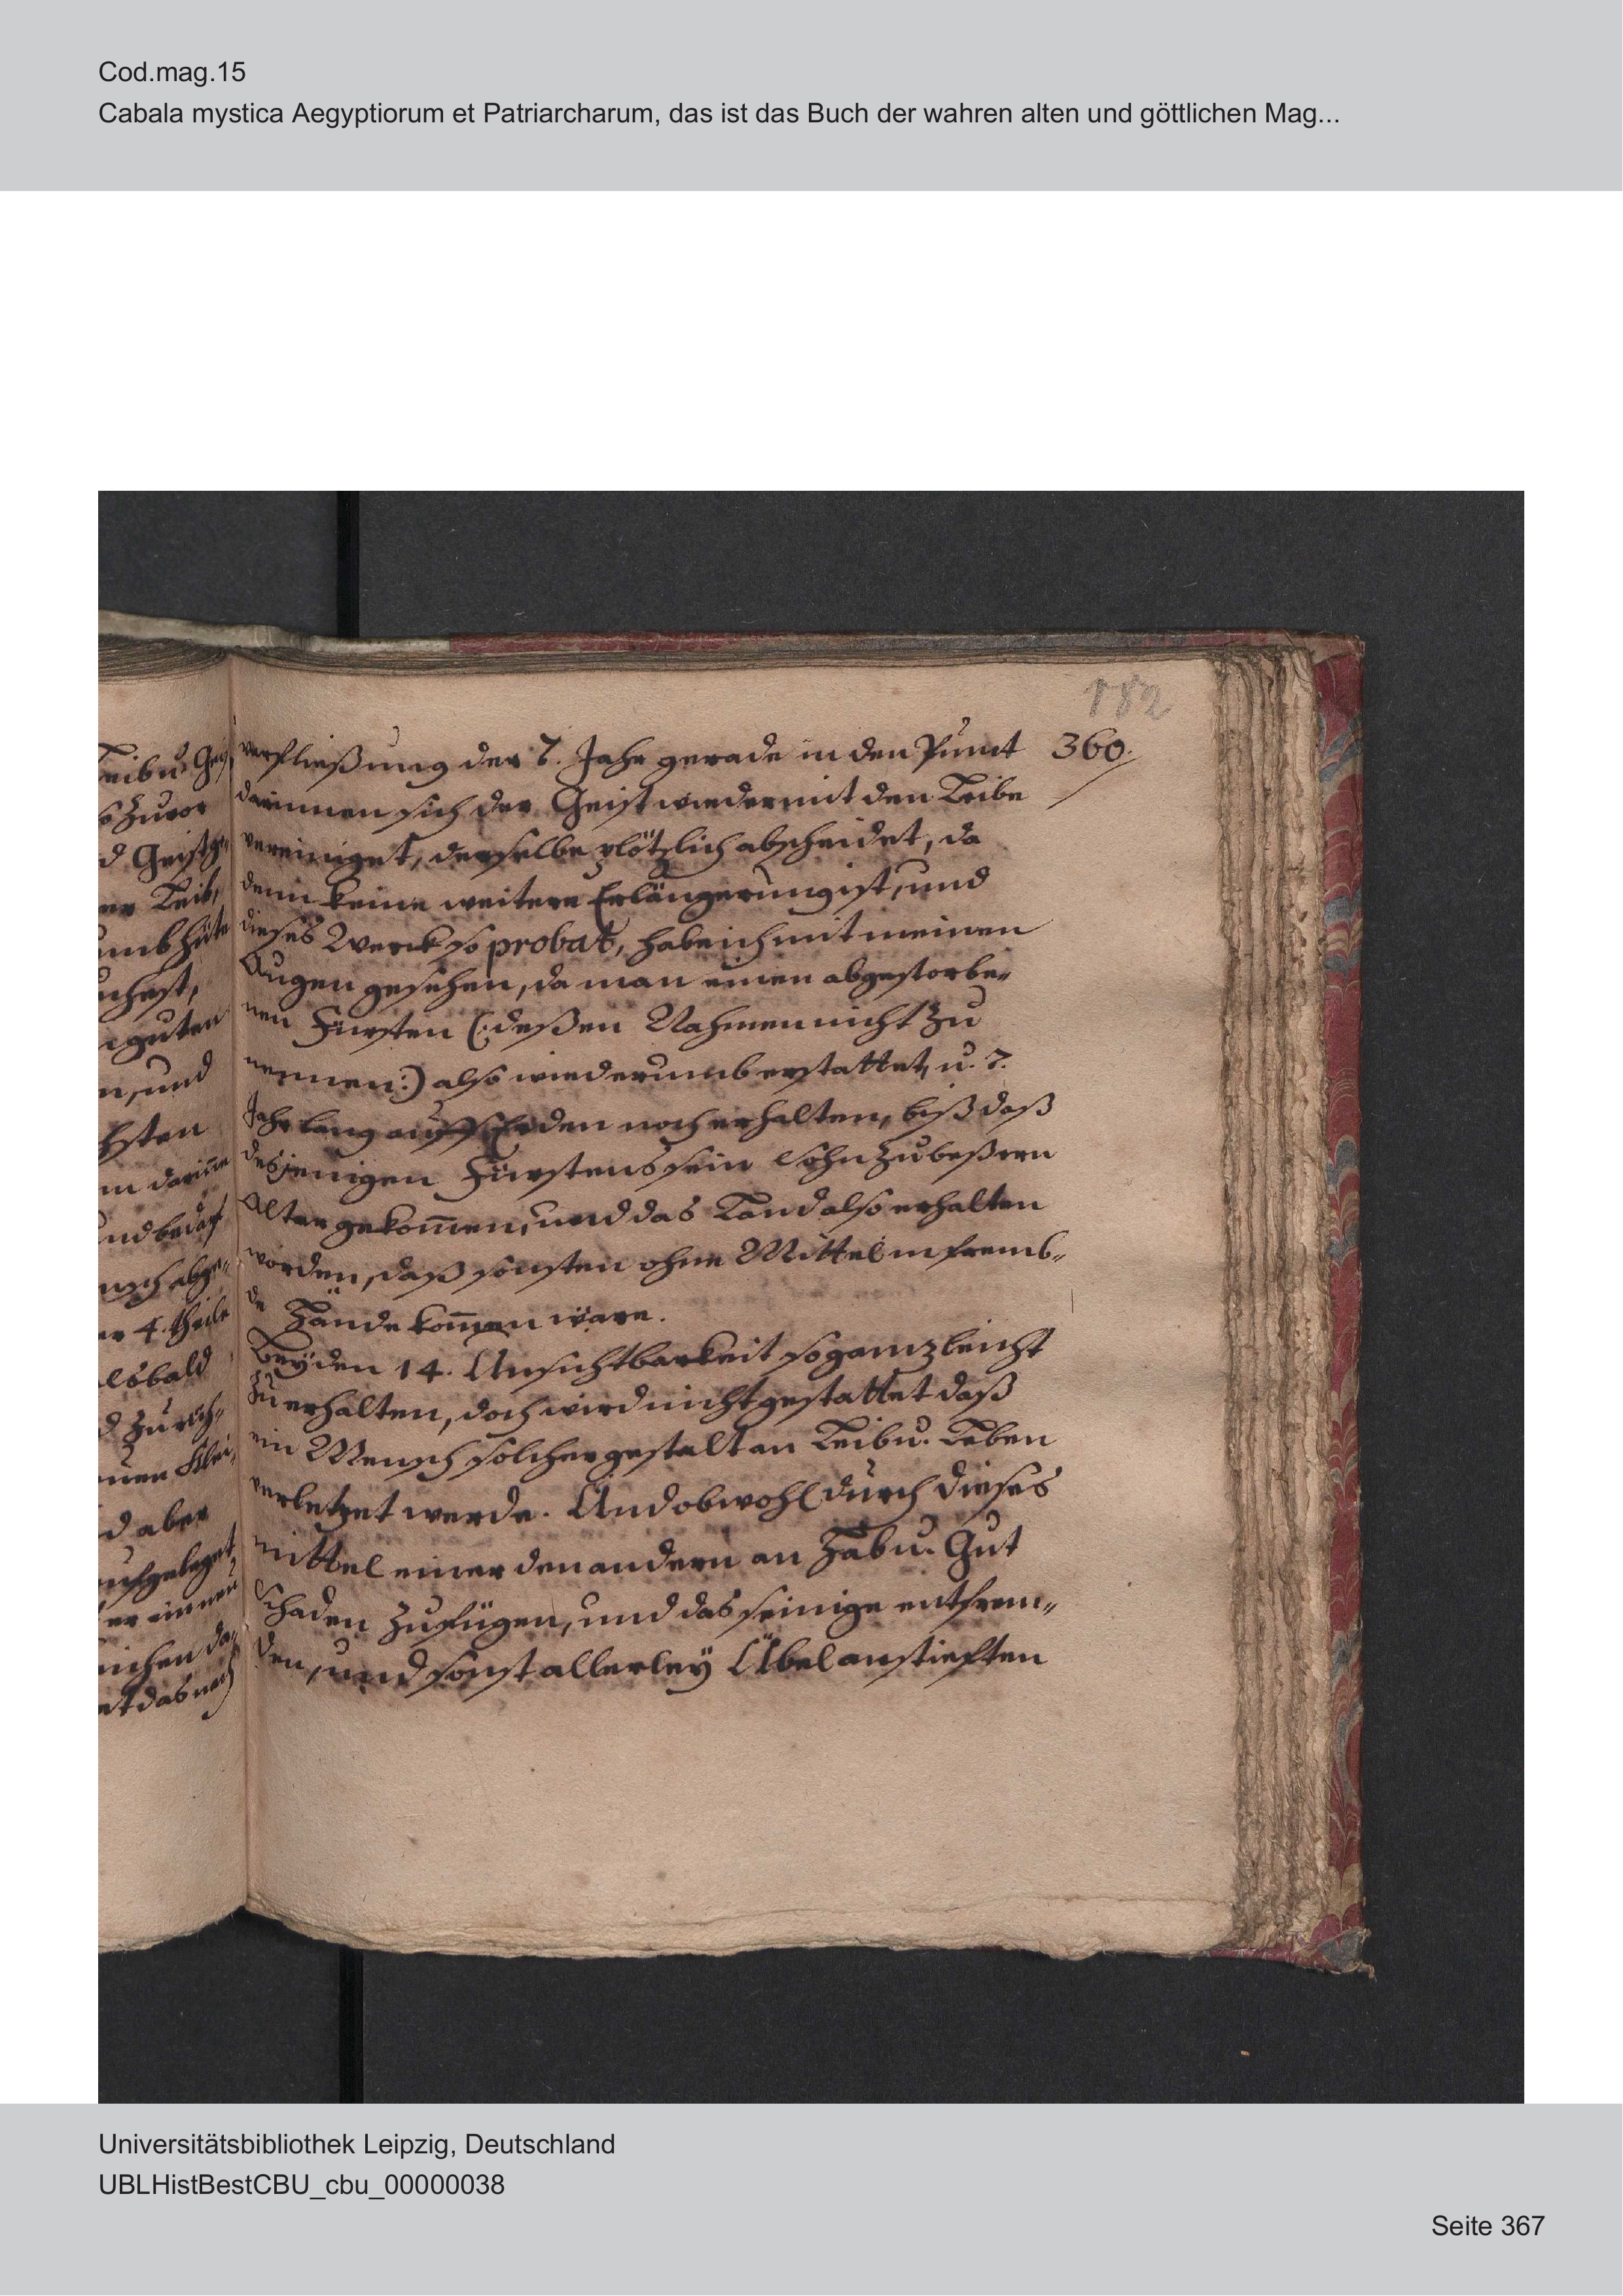 Cod.mag.15
Cabala mystica Aegyptiorum et Patriarcharum, das ist das Buch der wahren alten und göttlichen Mag...
182
360.
verfließung der 7. Jahr gerade in den Punct
darinnen sich der Geist wieder mit den Leibe
vereiniget, derselbe plötzlich abscheidet, da
denn keine weitere Erlängerung ist, und
dieses Werck so probat, habe ich mit meinen
Augen gesehen, da man einen abgestorbe-
nen Fürsten (:deßen Nahmen nicht zu
nennen:) also wiederumb erstattet, u. 7.
Jahr lang auff Erden noch erhalten, biß daß
desjenigen Fürstens sein Sohn zu beßern
Alter gekom̄en, und das Land also erhalten
worden, daß sonsten ohne Mittel in fremb-
de Hände kom̄en wäre.
Bey den 14. Unsichtbarkeit so gantz leicht
zu erhalten, doch wird nicht gestattet daß
ein Mensch solcher gestalt an Leib u. Leben
verletzet werde. Und obwohl durch dieses
mittel einer den andern an Haab u. Gut
schaden zufügen, und das seinige entfrem-
den, und sonst allerley Übel anstifften
Leib u. Geist
so zuvor
d Geist
er Leib,
guten
n, und
hsten
m darin̄e
und bedarf
er 4. theile
alsbald
d aber
aufgeleget
Universitätsbibliothek Leipzig, Deutschland
UBLHistBestCBU_cbu_00000038
Seite 367